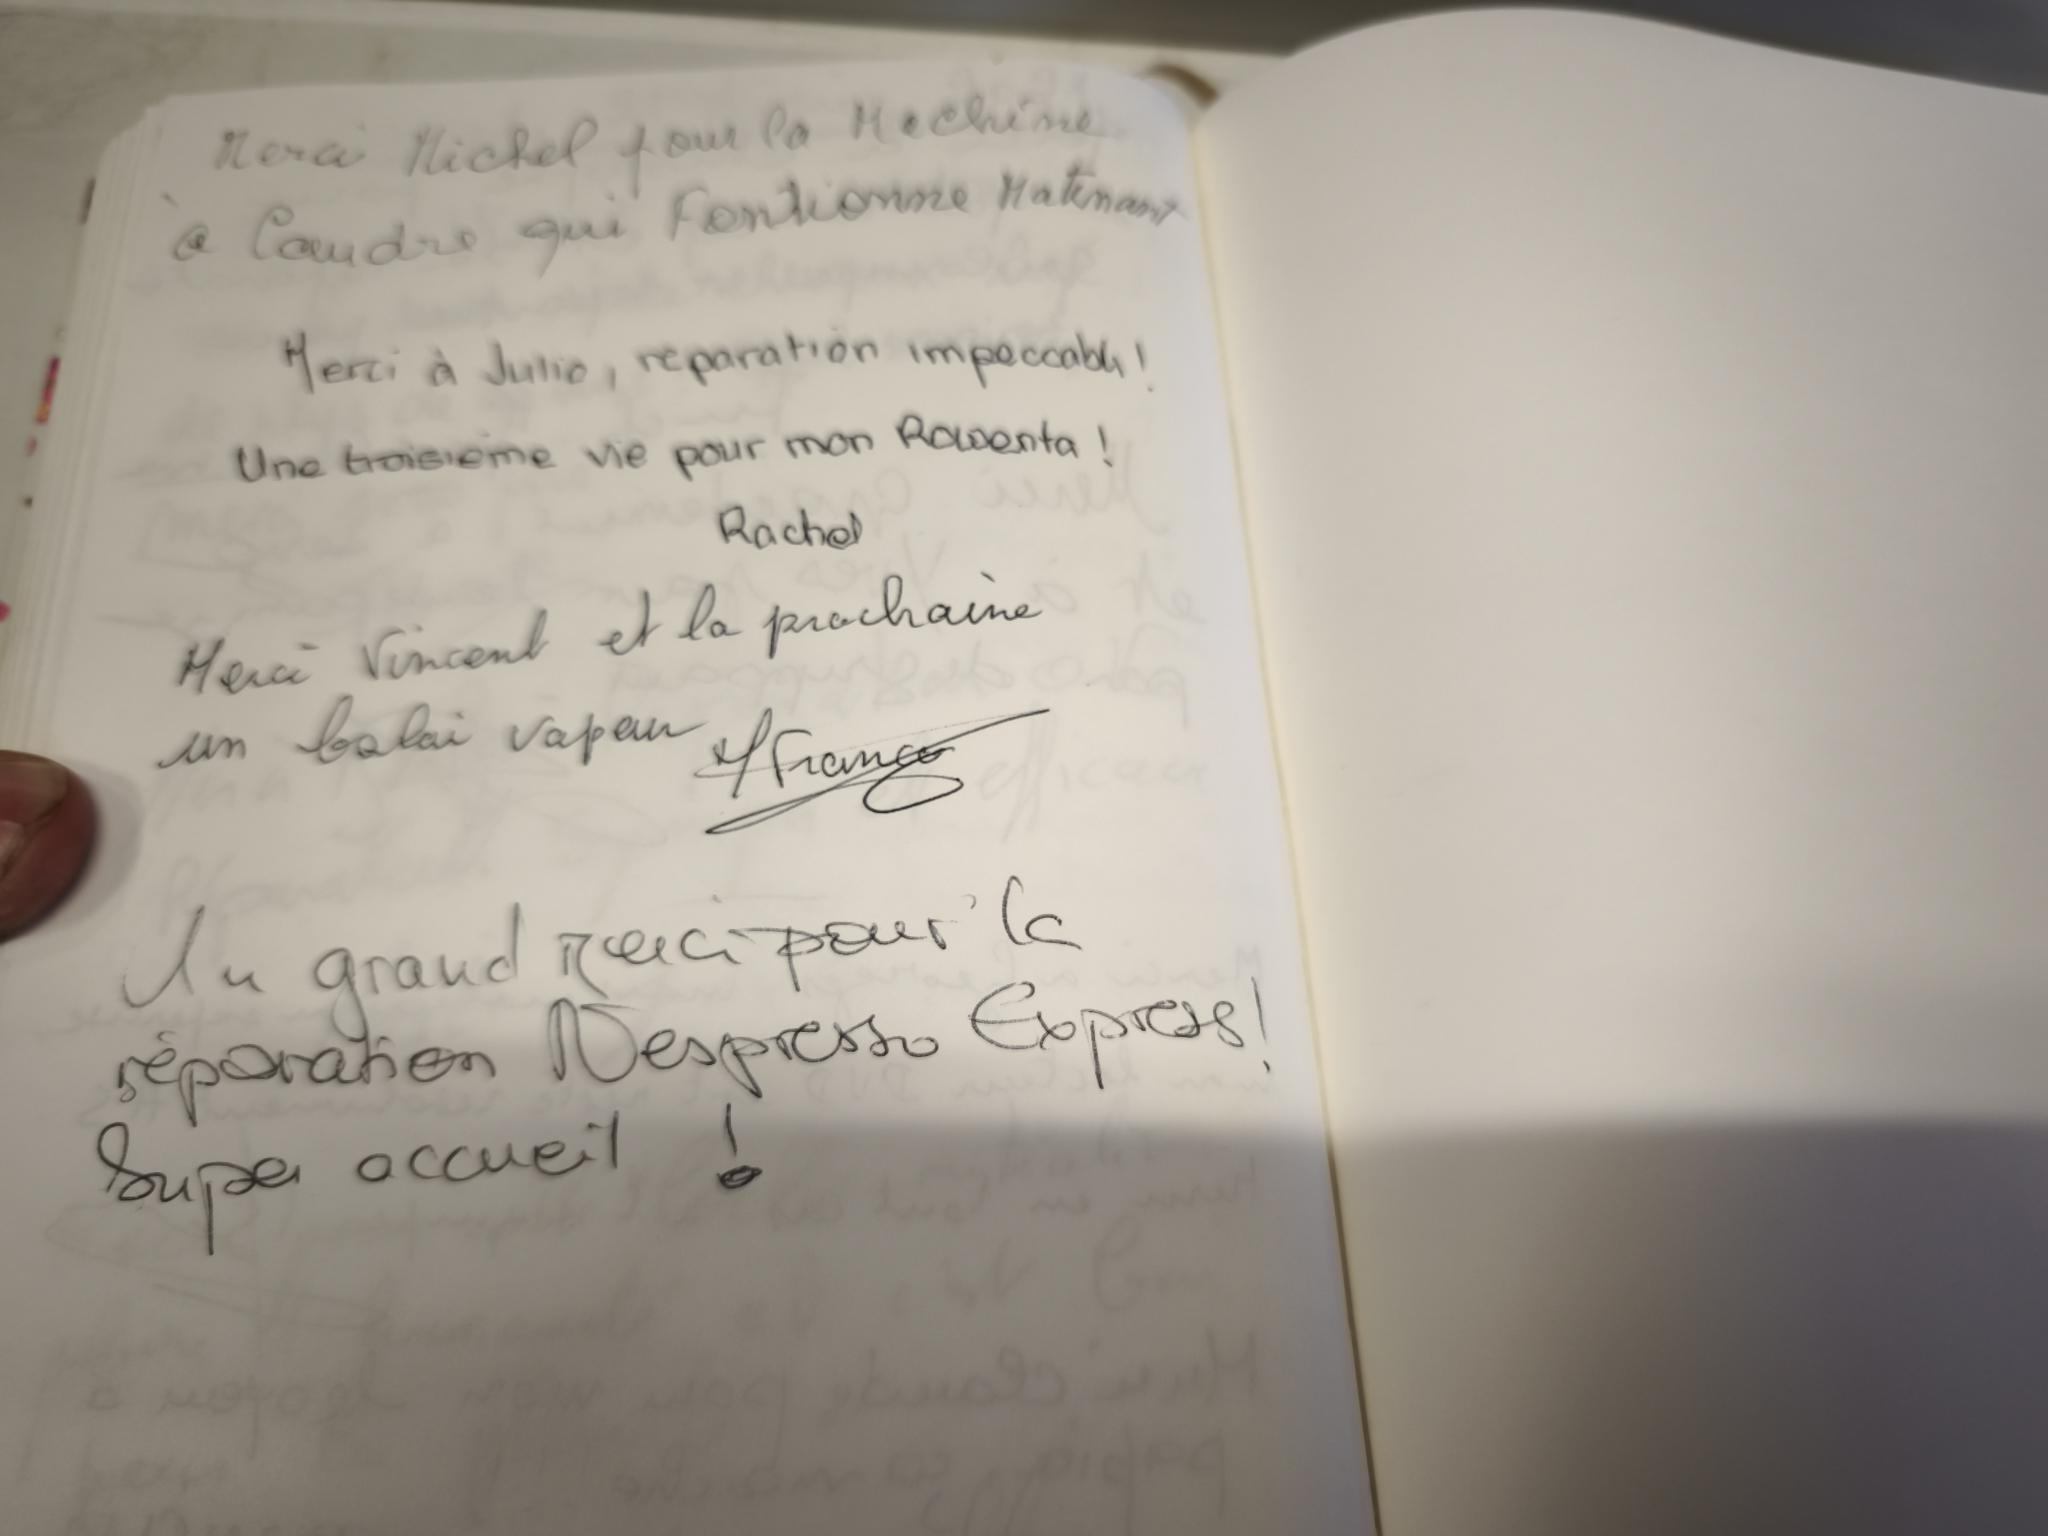 Merci Michel pour la Machine
à Coudre qui Fontionne Matenant
Merci à Julio, reparation impeccable !
Une troisième vie pour mon Rowenta !
Rachel
Merci Vincent et la prochaine
un balai vapeur
Un grand merci pour la
réparation Nespresso Express!
Super accueil !